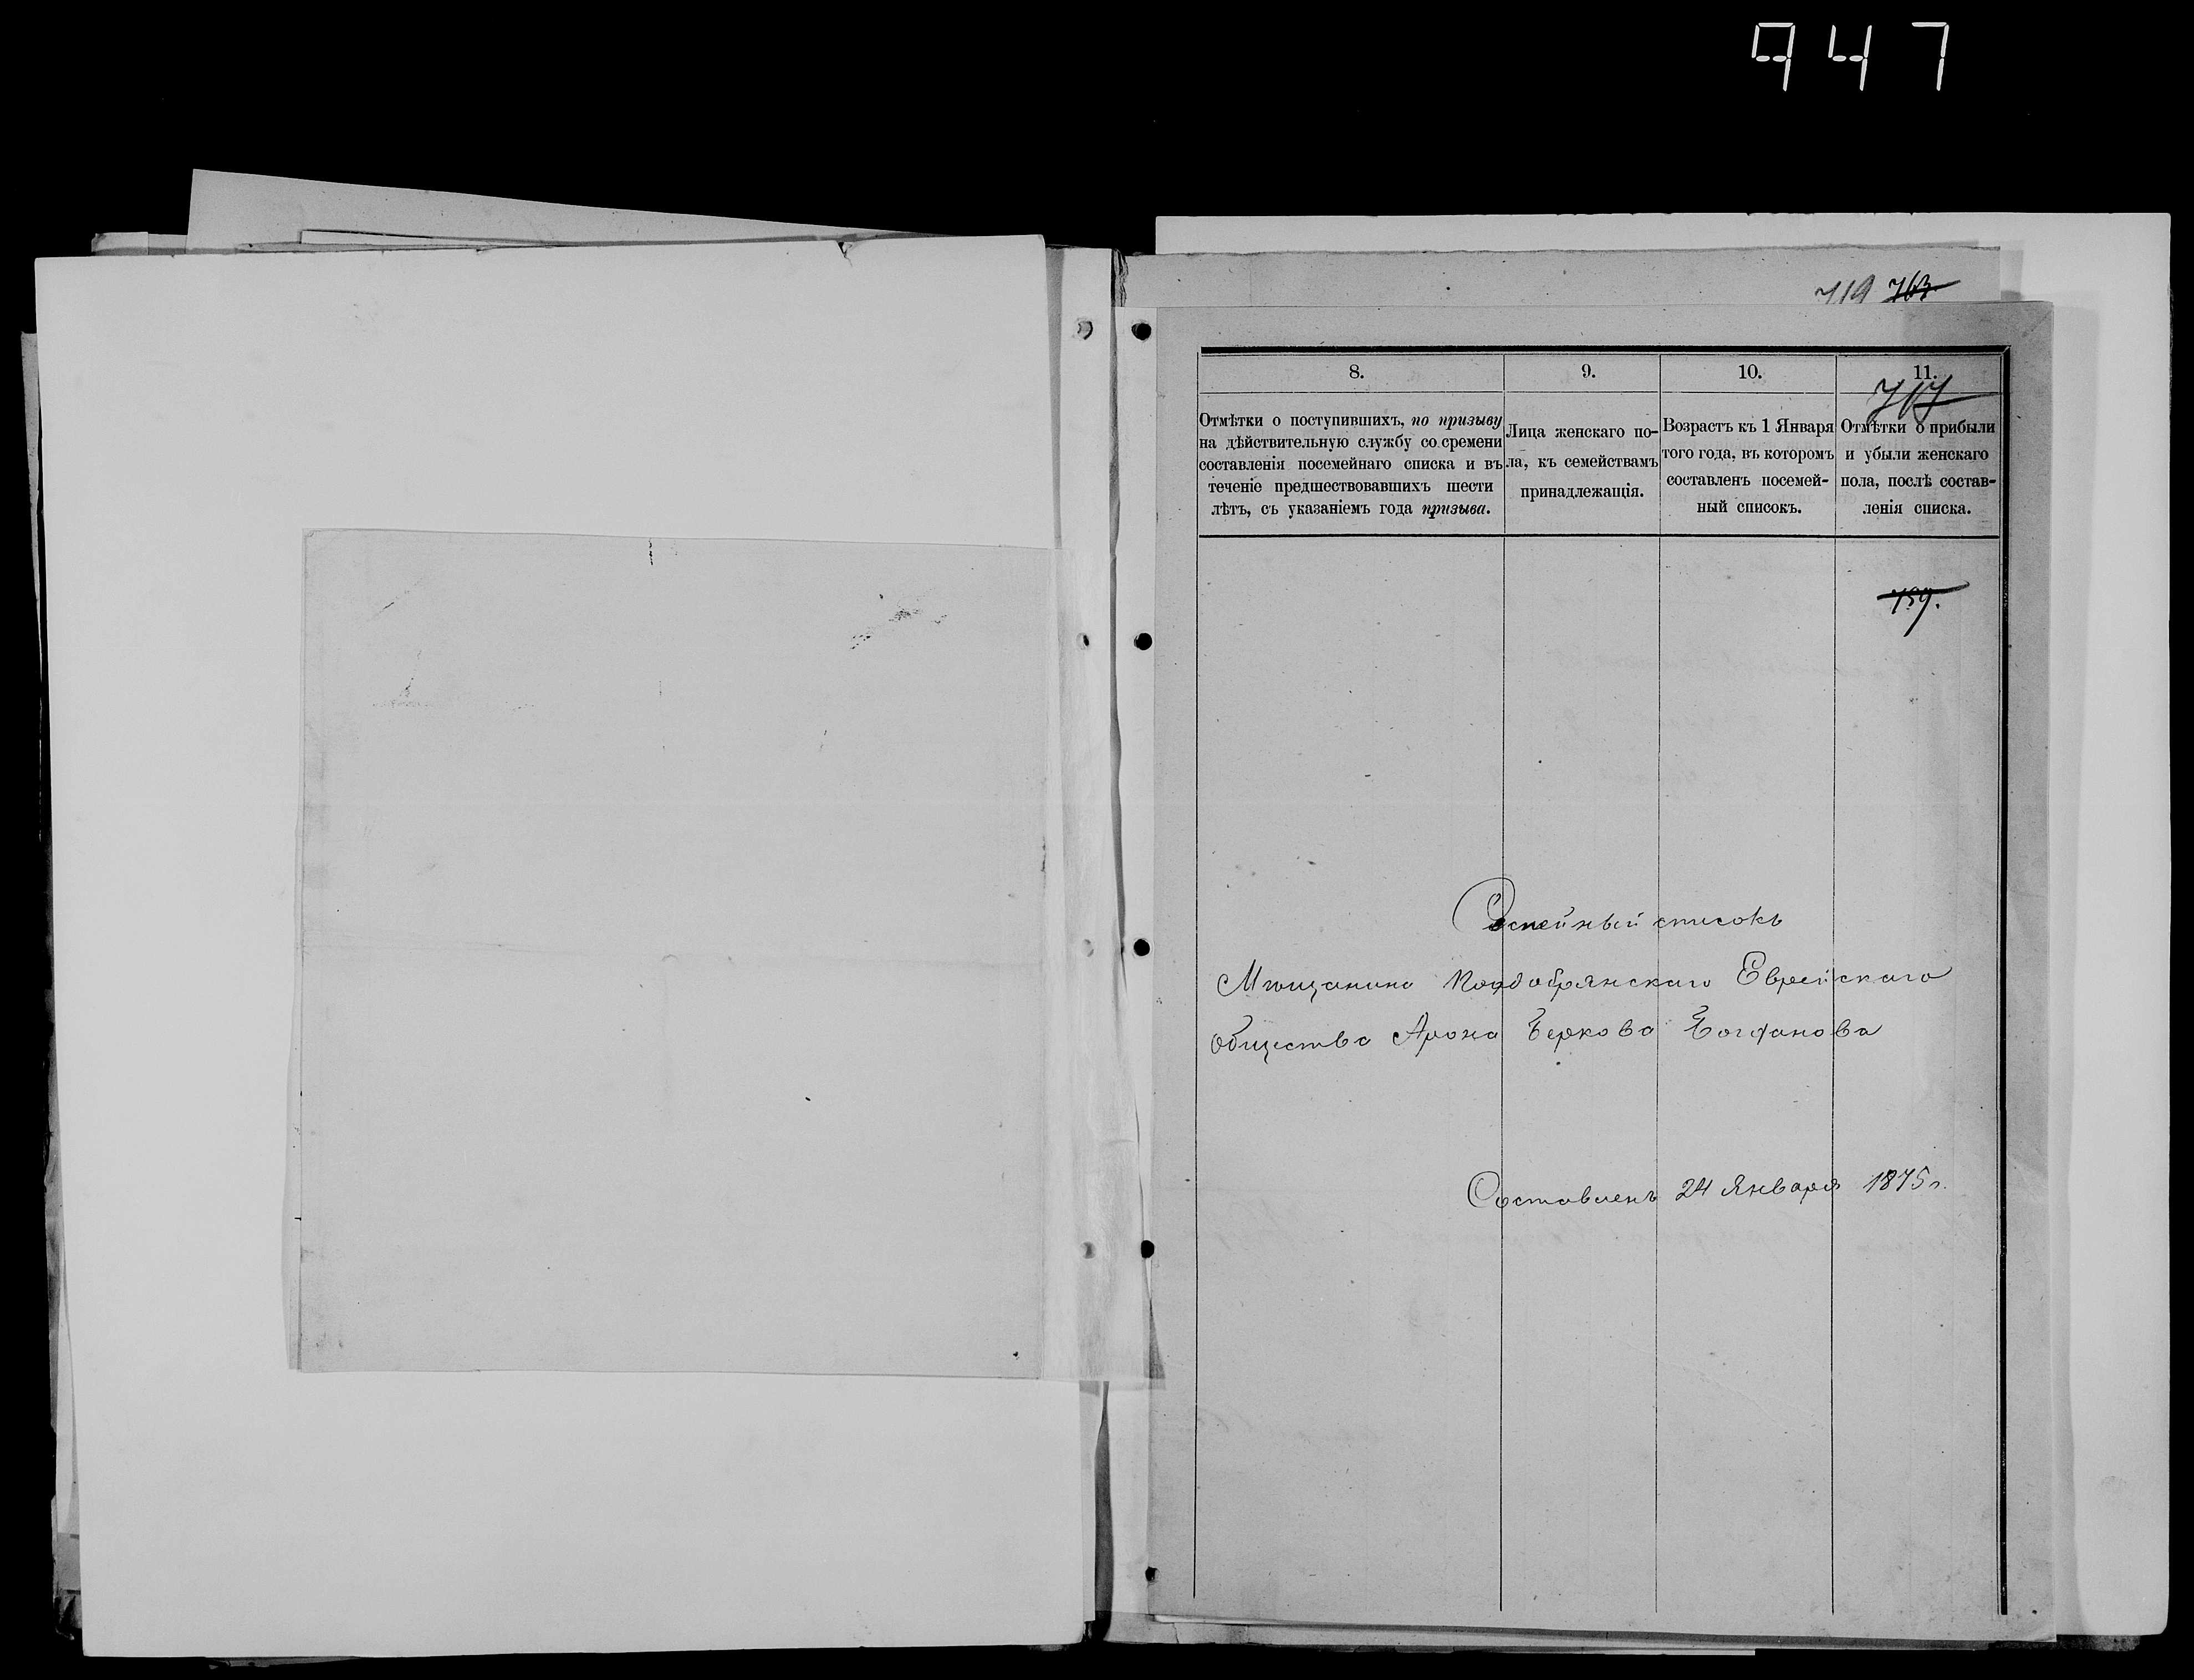 947
719 763
8.
9.
10.
11.
Отмѣтки о поступившихъ, по призыву
на дѣйствительную службу со времени
составленія посемейнаго списка и въ
теченіе предшествовавшихъ шести
лѣтъ, съ указаніемъ года призыва.
Лица женскаго по-
ла, къ семействамъ
принадлежащія.
Возрастъ къ 1 Января
того года, въ которомъ
составленъ посемей-
ный списокъ.
Отмѣтки о прибыли
и убыли женскаго
пола, послѣ состав-
ленія списка.
759.
Семейный списокъ
Мѣщанина Еврейскаго
общества Арона Беркова Богданова
Составленъ 24 Января 1875 г.